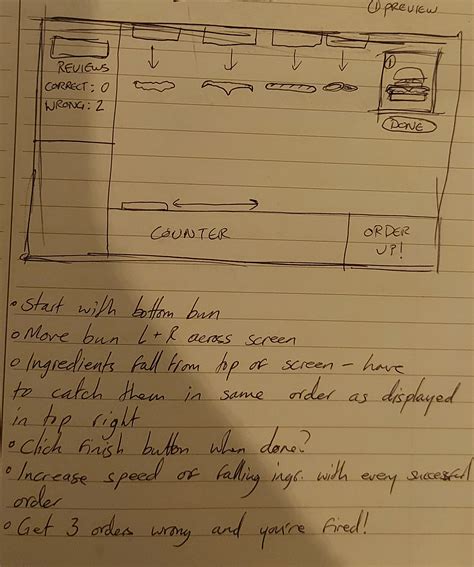 ① PREVIEW
REVIEWS
CORRECT: 0
WRONG: 2
①
DONE
COUNTER
ORDER
UP!
• Start with bottom bun
• Move bun L + R across screen
• Ingredients fall from top of screen - have
to catch them in same order as displayed
in top right
• Click finish button when done?
• Increase speed of falling ingr. with every successful
order
• Get 3 orders wrong and you're fired!